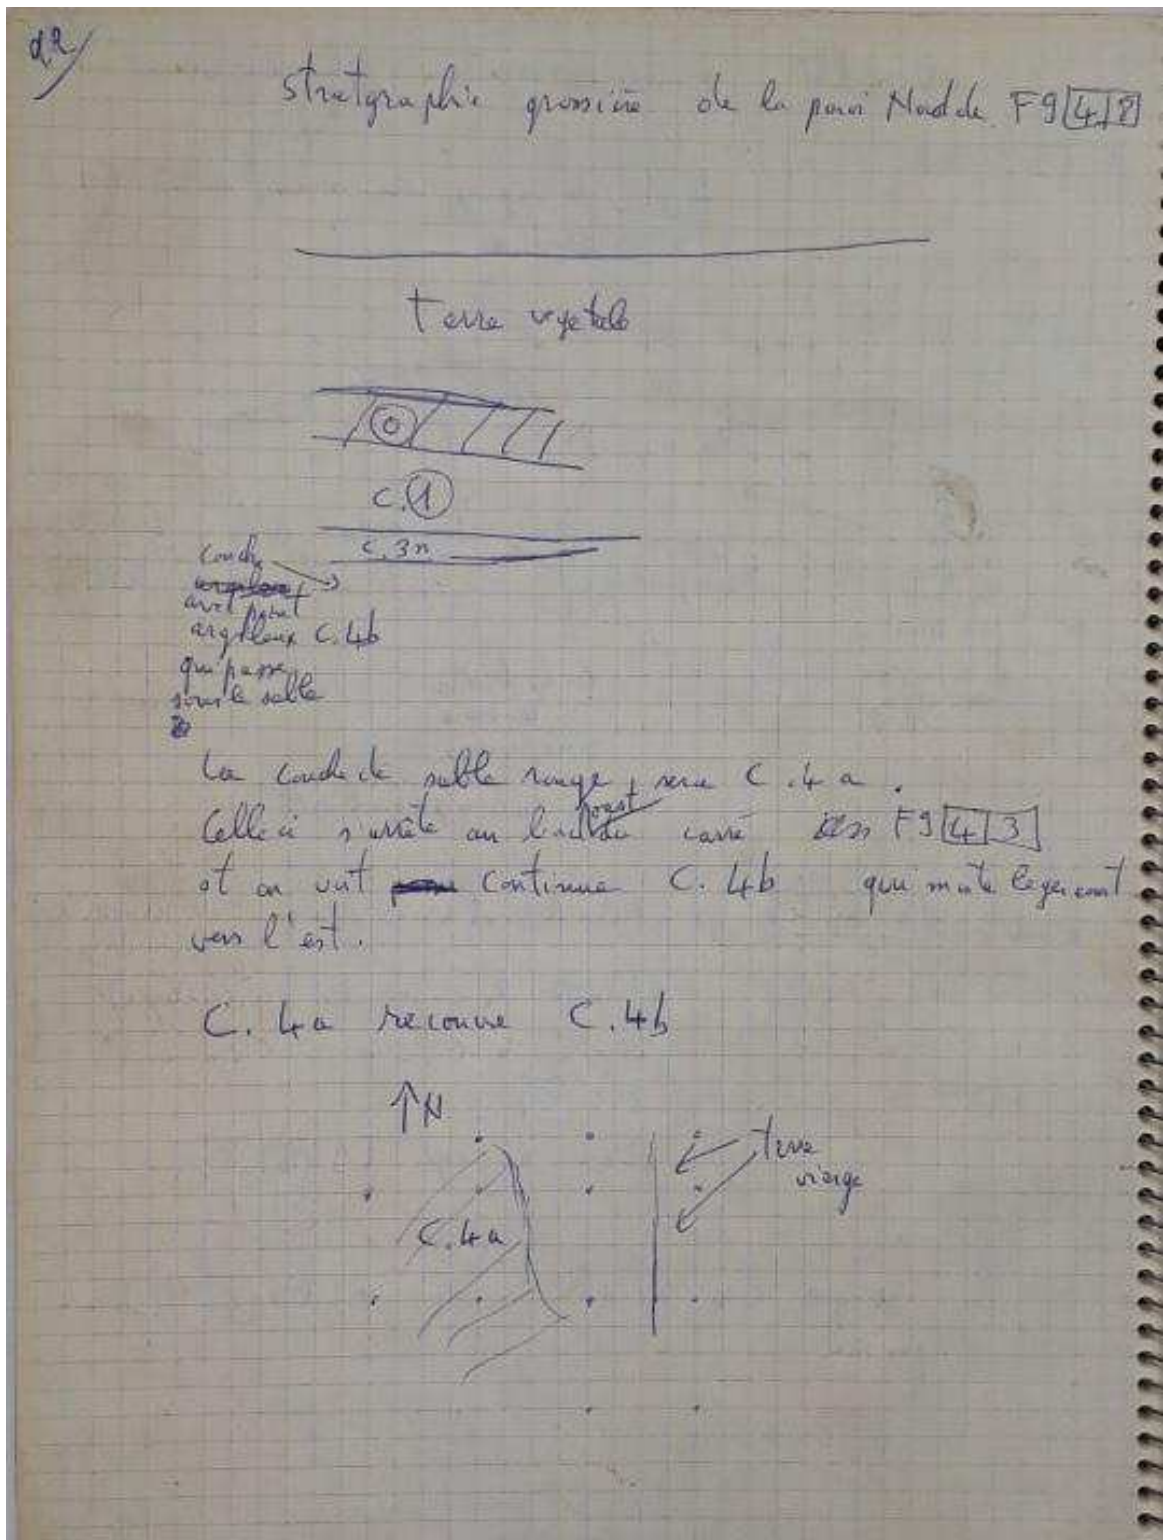 22/
stratgraphie grossière de la paroi Nord de F9 4 8
Terre vegetale
0
C. 1
C. 3n
couche
avec point
argileux C.4b
qui passe
sous le sable
La couche de sable rouge, sera C.4a.
Celle ci s'arrête au bord ouest du carré F9 4 3
et on voit continue C.4b qui monte legerement
vers l'est.
C.4a recouvre C.4b
N
terre
vierge
C.4a